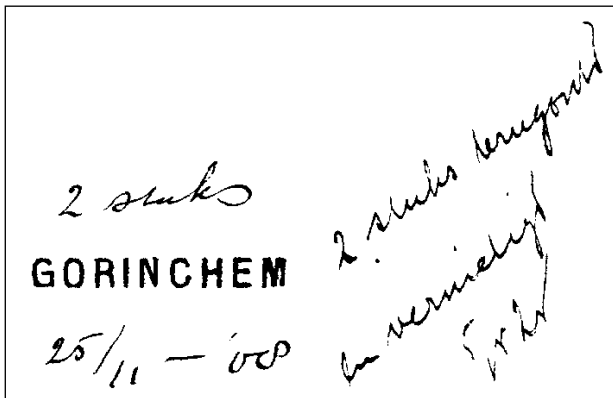 2 stuks
GORINCHEM
25/11 — '08
2 stuks
en vernietigd